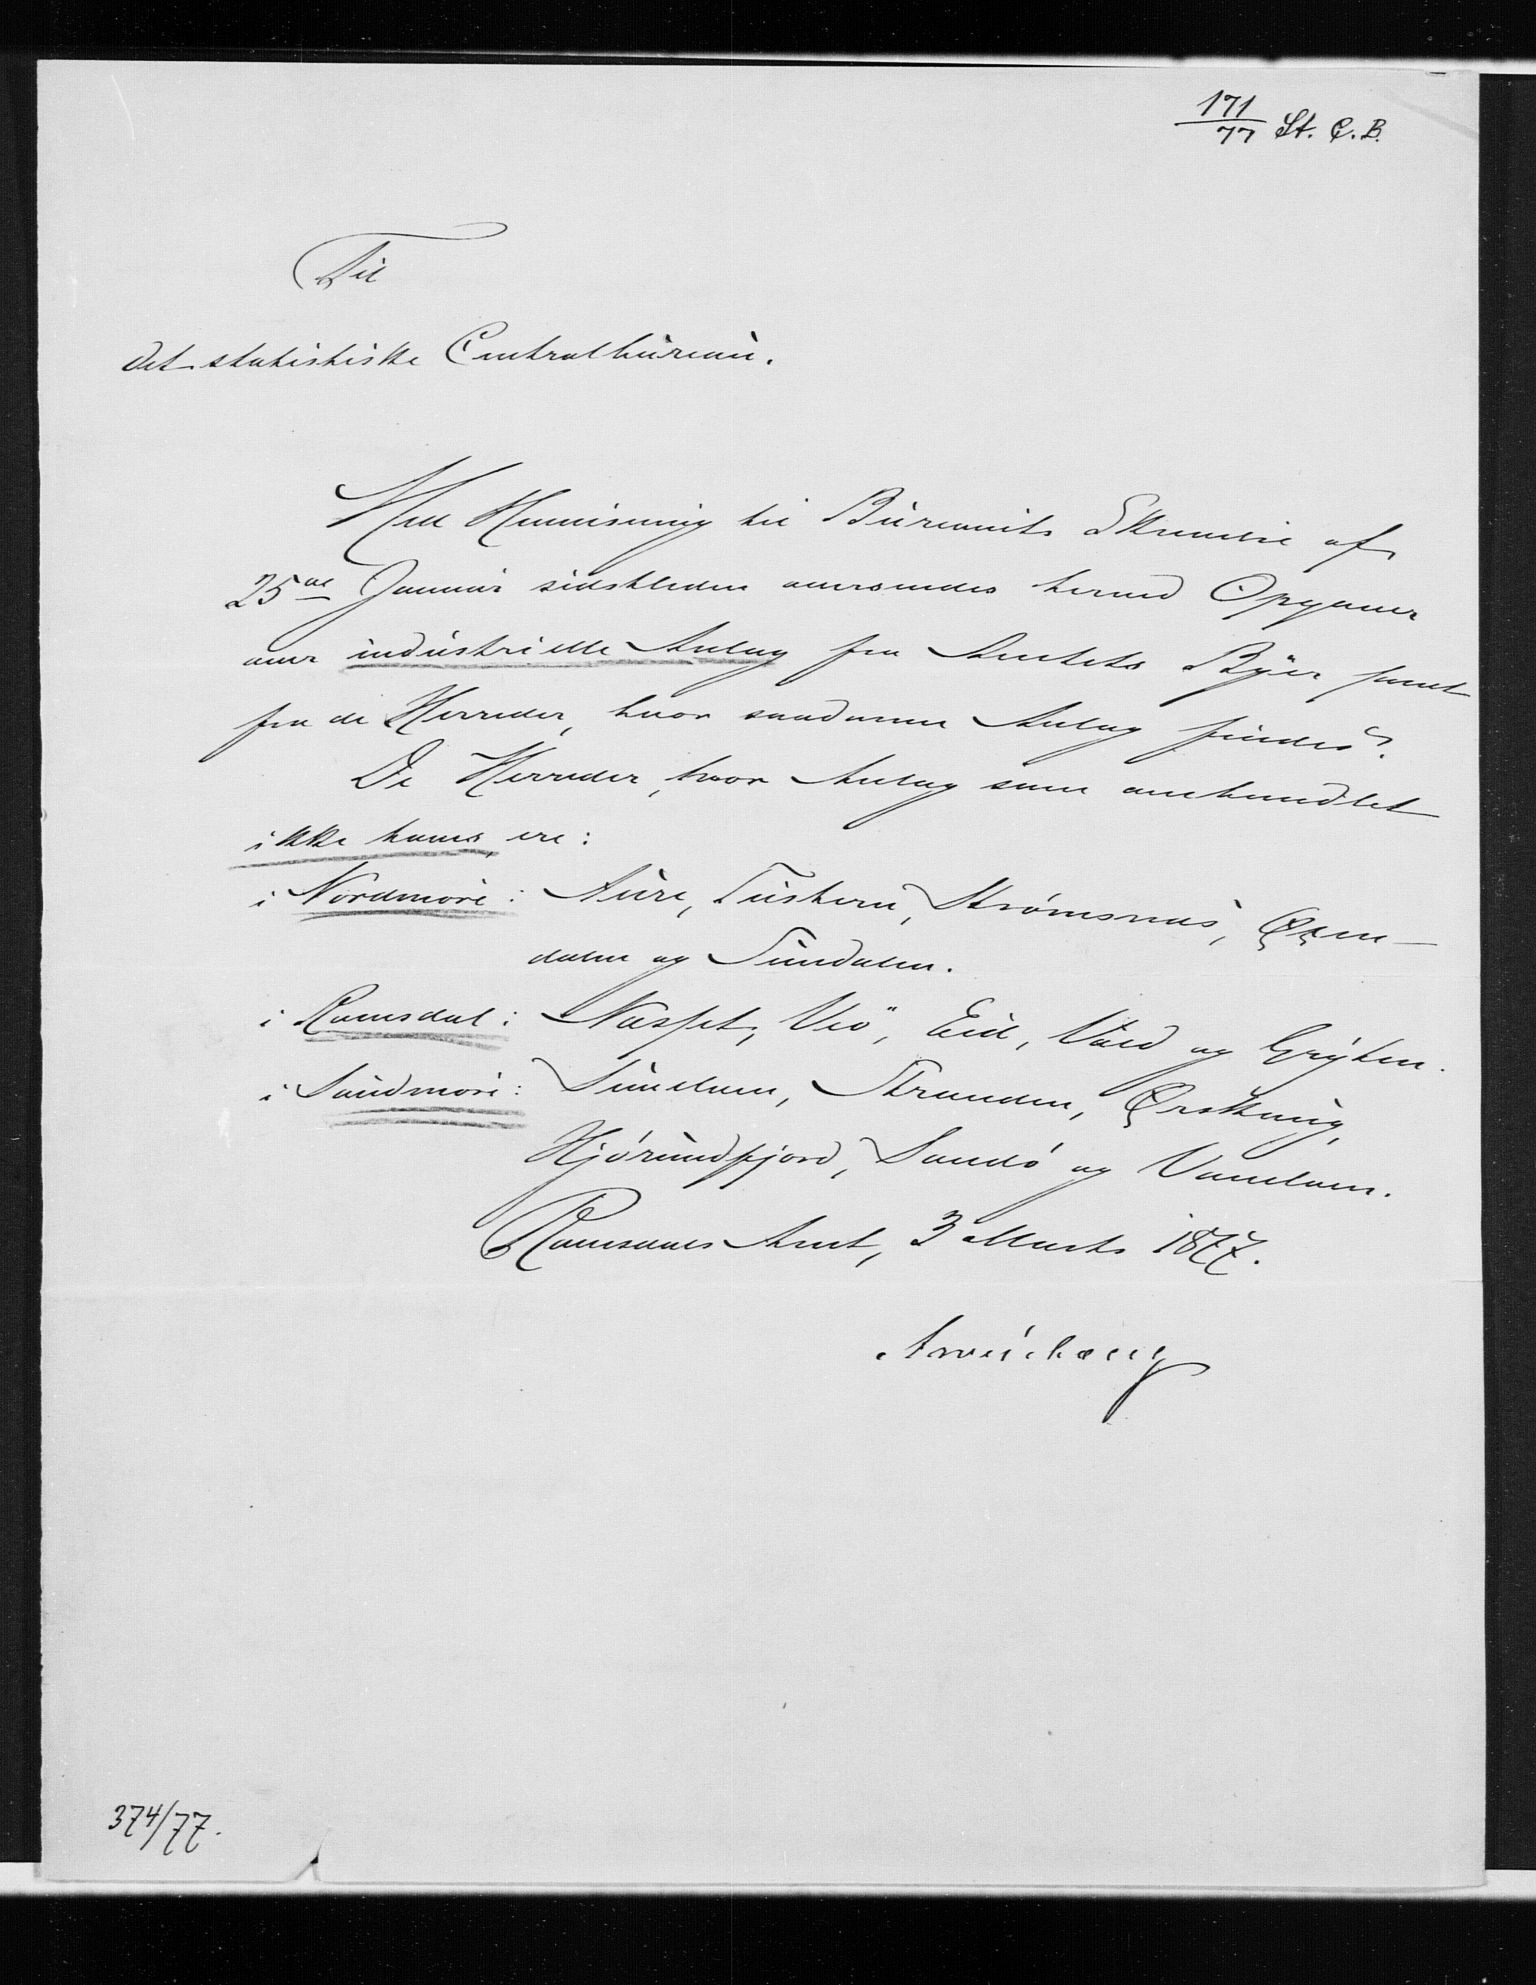 171/77 St. C. B.
Til
det statistiske Centralbureau.
Med Henvisning til Bureauets Skrivelse af
25de Januar sidstleden oversendes herved Opgaver
over industrielle Anlæg fra Amtets Byer samt
fra de Herreder, hvor saadanne Anlæg findes.
De Herreder, hvor Anlæg som omhandlet
ikke haves, ere:
i Nordmøre: Aure, Tustern, Strømsnæs, Øxen-
dalen og Sundalen.
i Romsdal: Næsset, Veø, Eid, Vold og Gryten.
i Søndmøre: Sunelven, Stranden, Ørskoug,
Hjørundfjord, Sandø og Vanelven.
Romsdals Amt, 3 Marts 1877.
374/77.